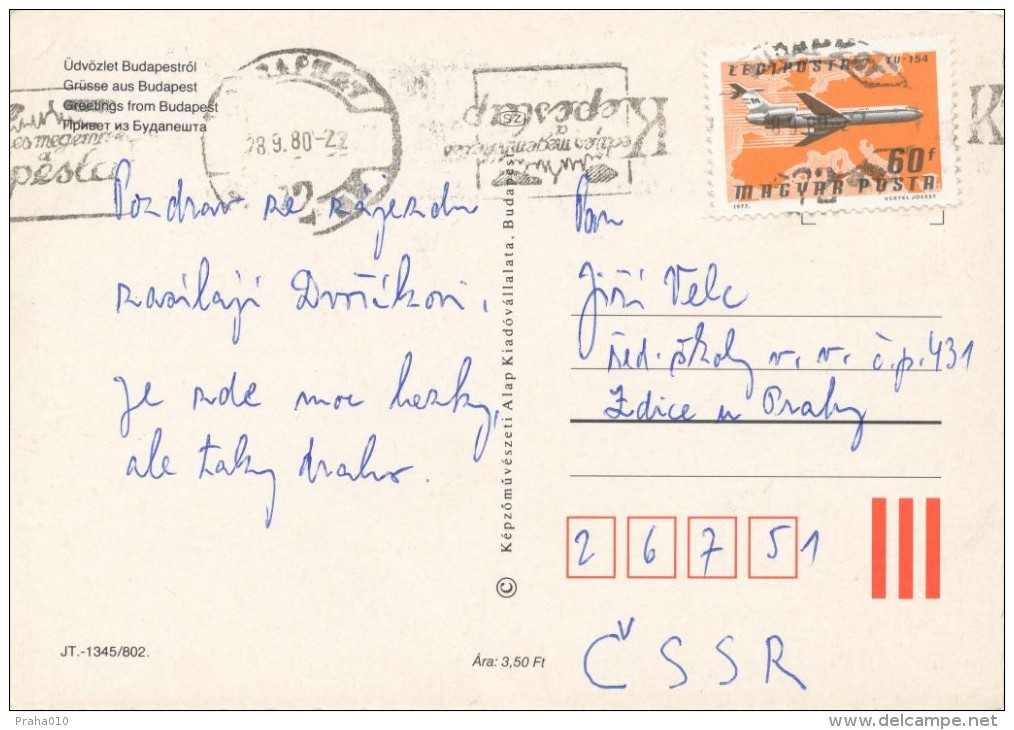 Üdvözlet Budapestről
Grüsse aus Budapest
Greetings from Budapest
Привет из Будапешта
28.9.80-22
Képeslap
LÉGIPOSTA
TU-154
60f
MAGYAR POSTA
1977.
VERTEL JÓZSEF
Pozdrav ze zájezdu
zasílají Dvořákovi.
Je zde moc hezky,
ale taky draho.
Pan
Jiří Velc
řed. školy v. v. č.p. 431
Zdice u Prahy
2 6 7 5 1
ČSSR
© Képzőművészeti Alap Kiadóvállalata, Budapest
SZ
JT.-1345/802.
Ára: 3,50 Ft
Praha010
delcampe.net